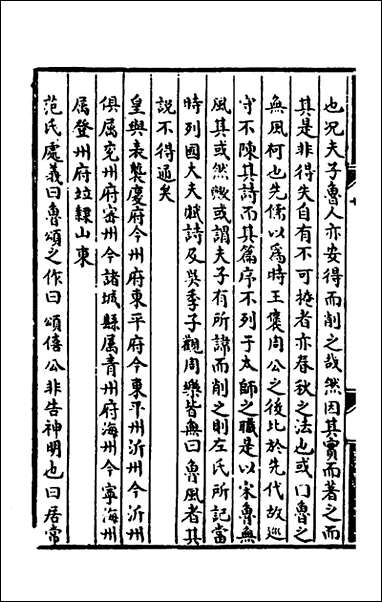 也况夫子魯人亦安得而削之哉然因其實而著之而
其是非得失自有不可掩者亦春秋之法也或曰魯之
無風何也先儒以爲時王褒周公之後比於先代故巡
守不陳其詩而其篇序不列于太師之職是以宋魯無
風其或然歟或謂夫子有所諱而削之則左氏所記當
時列國大夫賦詩及吳季子觀周樂皆無曰魯風者其
説不得通矣
皇輿表襲慶府今州府東平府今東平州沂州今沂州
俱屬兖州府密州今諸城縣属青州府海州今寧海州
属登州府竝隸山東
范氏處義曰魯頌之作曰頌僖公非告神明也曰居常